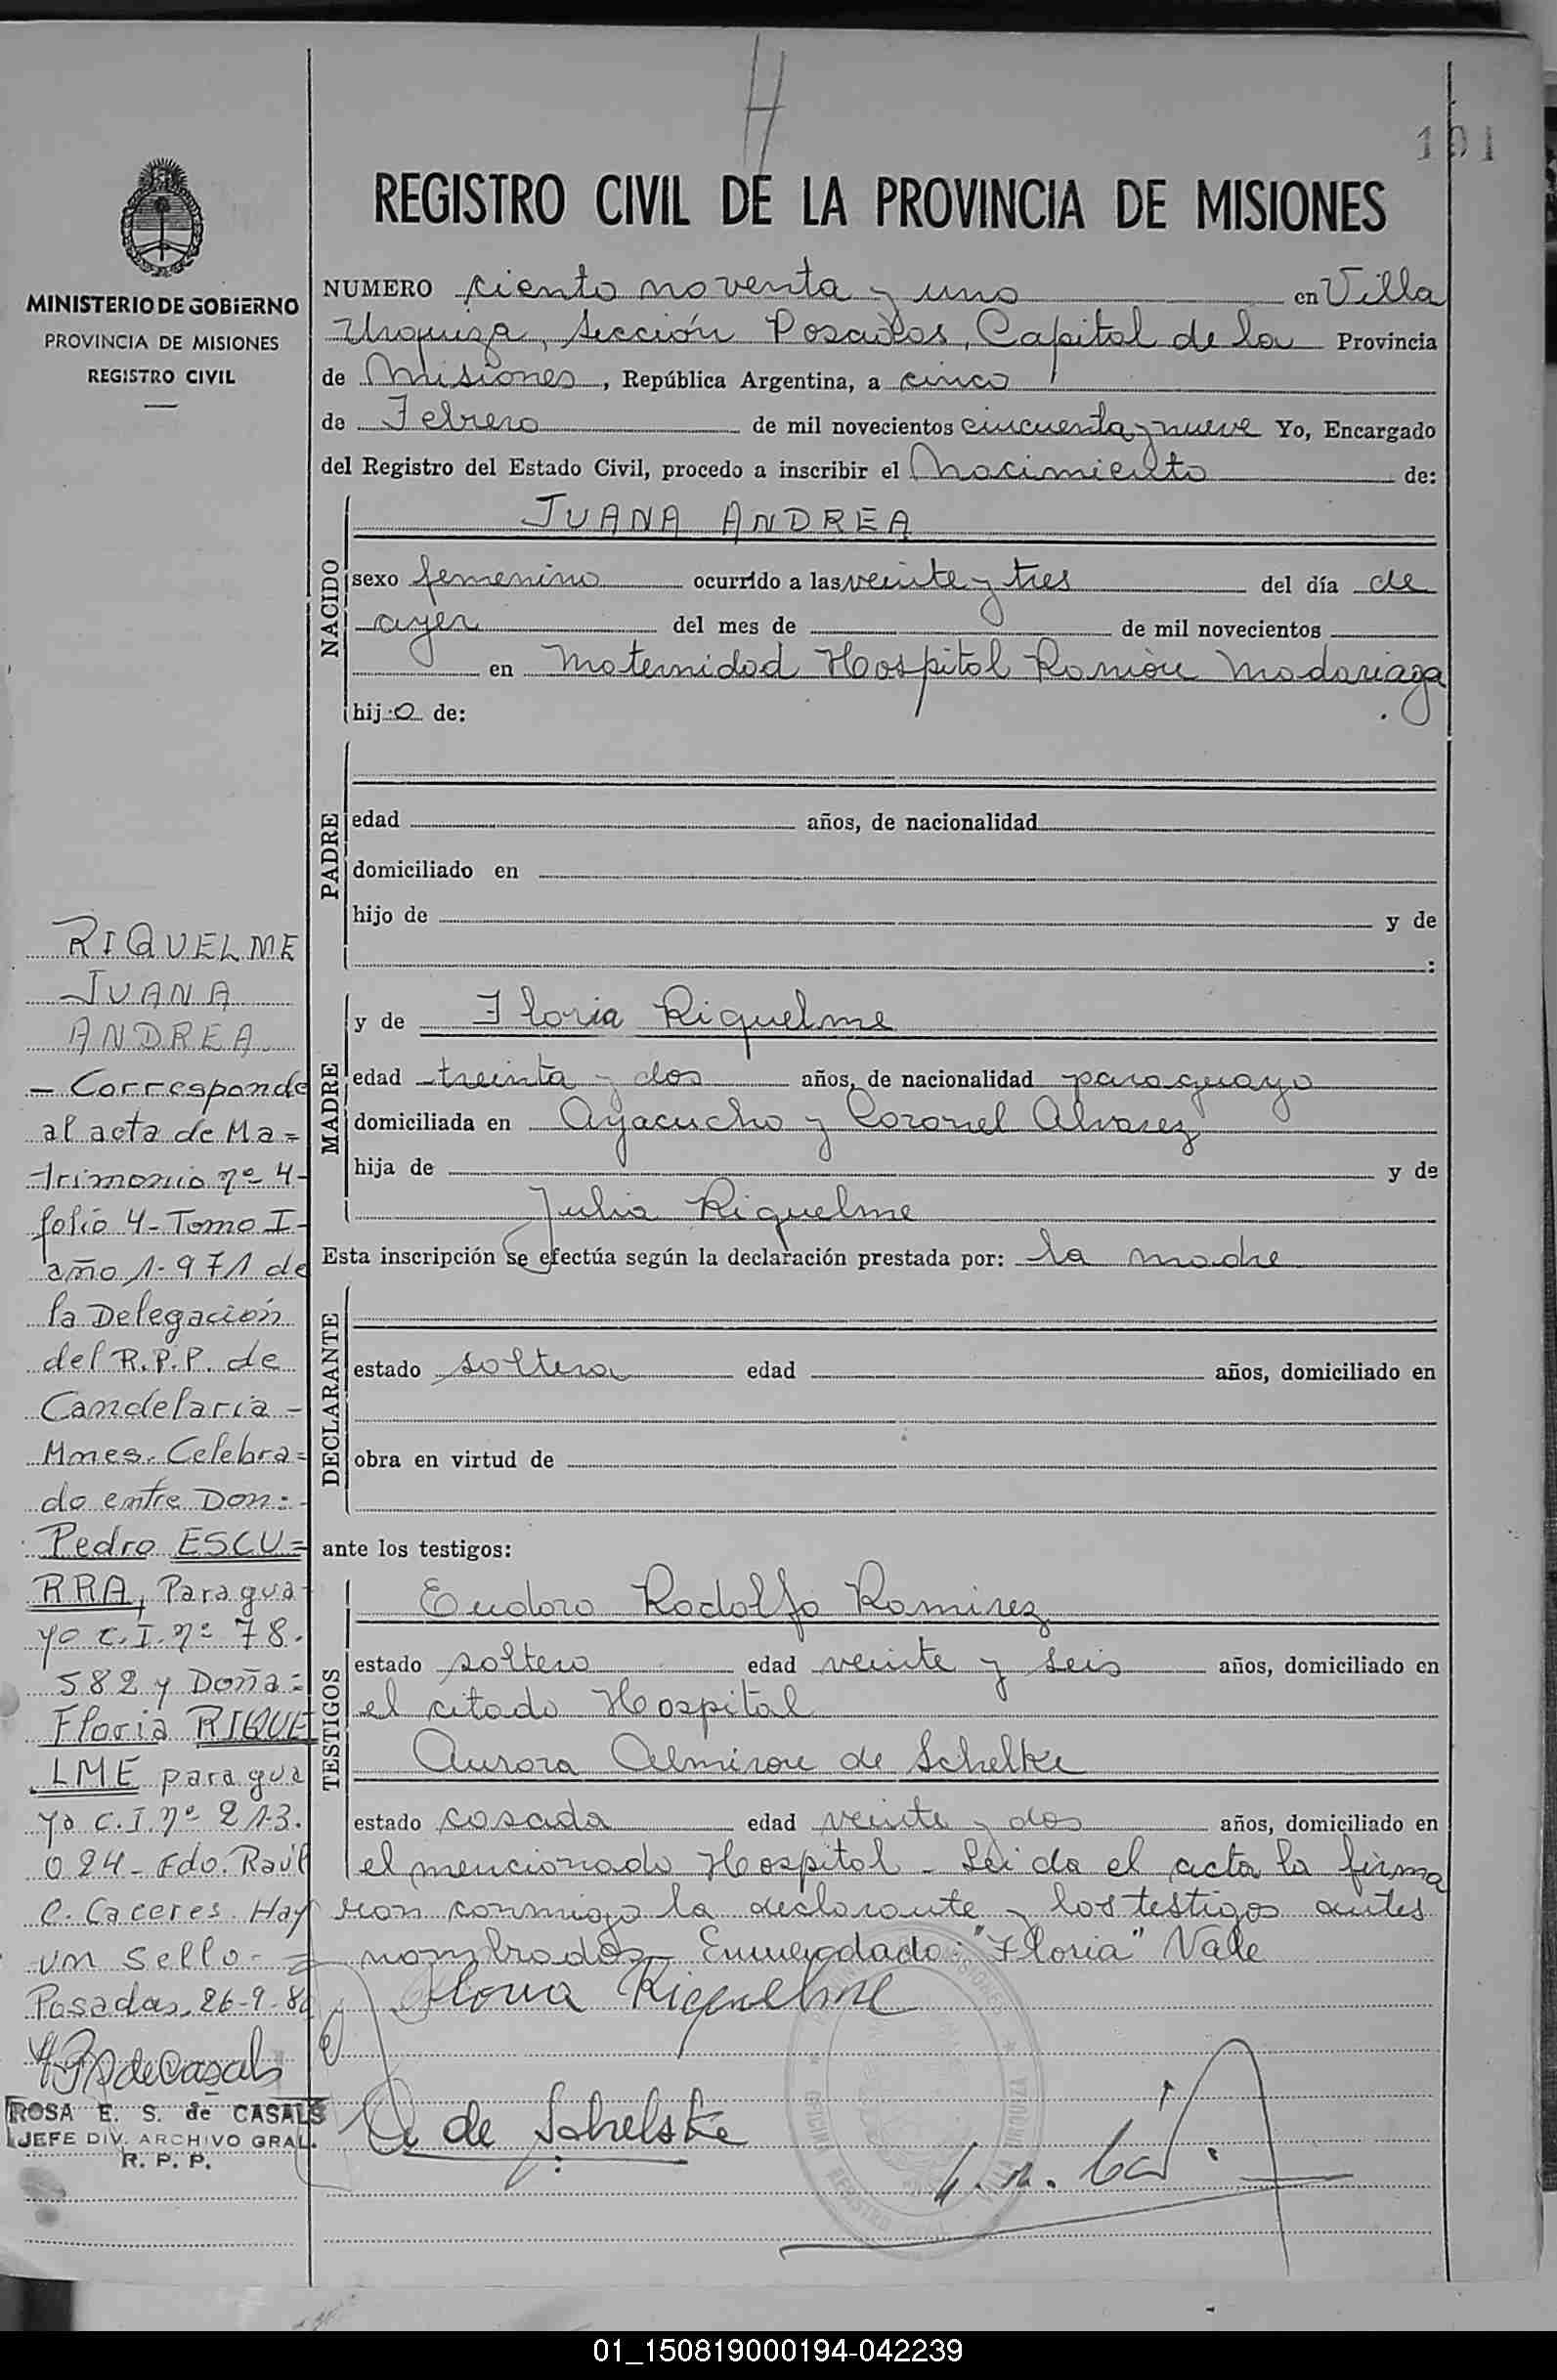 H
101
REGISTRO CIVIL DE LA PROVINCIA DE MISIONES
MINISTERIO DE GOBIERNO
PROVINCIA DE MISIONES
REGISTRO CIVIL
NUMERO ciento noventa y uno en Villa
Urquiza, Sección Posadas, Capital de la Provincia
de Misiones, República Argentina, a cinco
de Febrero de mil novecientos cincuenta y nueve Yo, Encargado
del Registro del Estado Civil, procedo a inscribir el Nacimiento de:
NACIDO
JUANA ANDREA
sexo femenino ocurrido a las veinte y tres del día de
ayer del mes de de mil novecientos
en Maternidad Hospital Ramón Madariaga
hij a de:
PADRE
edad años, de nacionalidad
domiciliado en
hijo de y de
:
MADRE
y de Floria Riquelme
edad treinta y dos años, de nacionalidad paraguaya
domiciliada en Ayacucho y Coronel Alvarez
hija de y de
Julia Riquelme
Esta inscripción se efectúa según la declaración prestada por: la madre
DECLARANTE
estado soltera edad años, domiciliado en
obra en virtud de
ante los testigos:
TESTIGOS
Eudoro Rodolfo Ramirez
estado soltero edad veinte y seis años, domiciliado en
el citado Hospital
Aurora Almiron de Schelke
estado casada edad veinte y dos años, domiciliado en
el mencionado Hospital - Leida el acta la firma
ron conmigo la declarante y los testigos antes
nombrados - Enmendado: "Floria" Vale
Floria Riquelme
A de Schelske
RIQUELME
JUANA
ANDREA.
- Corresponde
al acta de Ma=
trimonio nº 4-
folio 4 - Tomo I-
año 1.971 de
la Delegación
del R.P.P. de
Candelaria -
Mnes. Celebra=
do entre Don:-
Pedro ESCU=
RRA, Paragua
yo C.I. nº 78.
582 y Doña =
Floria RIQUE
LME paragua
ya C.I. nº 213.
024 - Fdo. Raúl
C. Caceres. Hay
un sello -
Posadas, 26-9-80
ROSA E. S. de CASALS
JEFE DIV. ARCHIVO GRAL.
R. P. P.
01_150819000194-042239